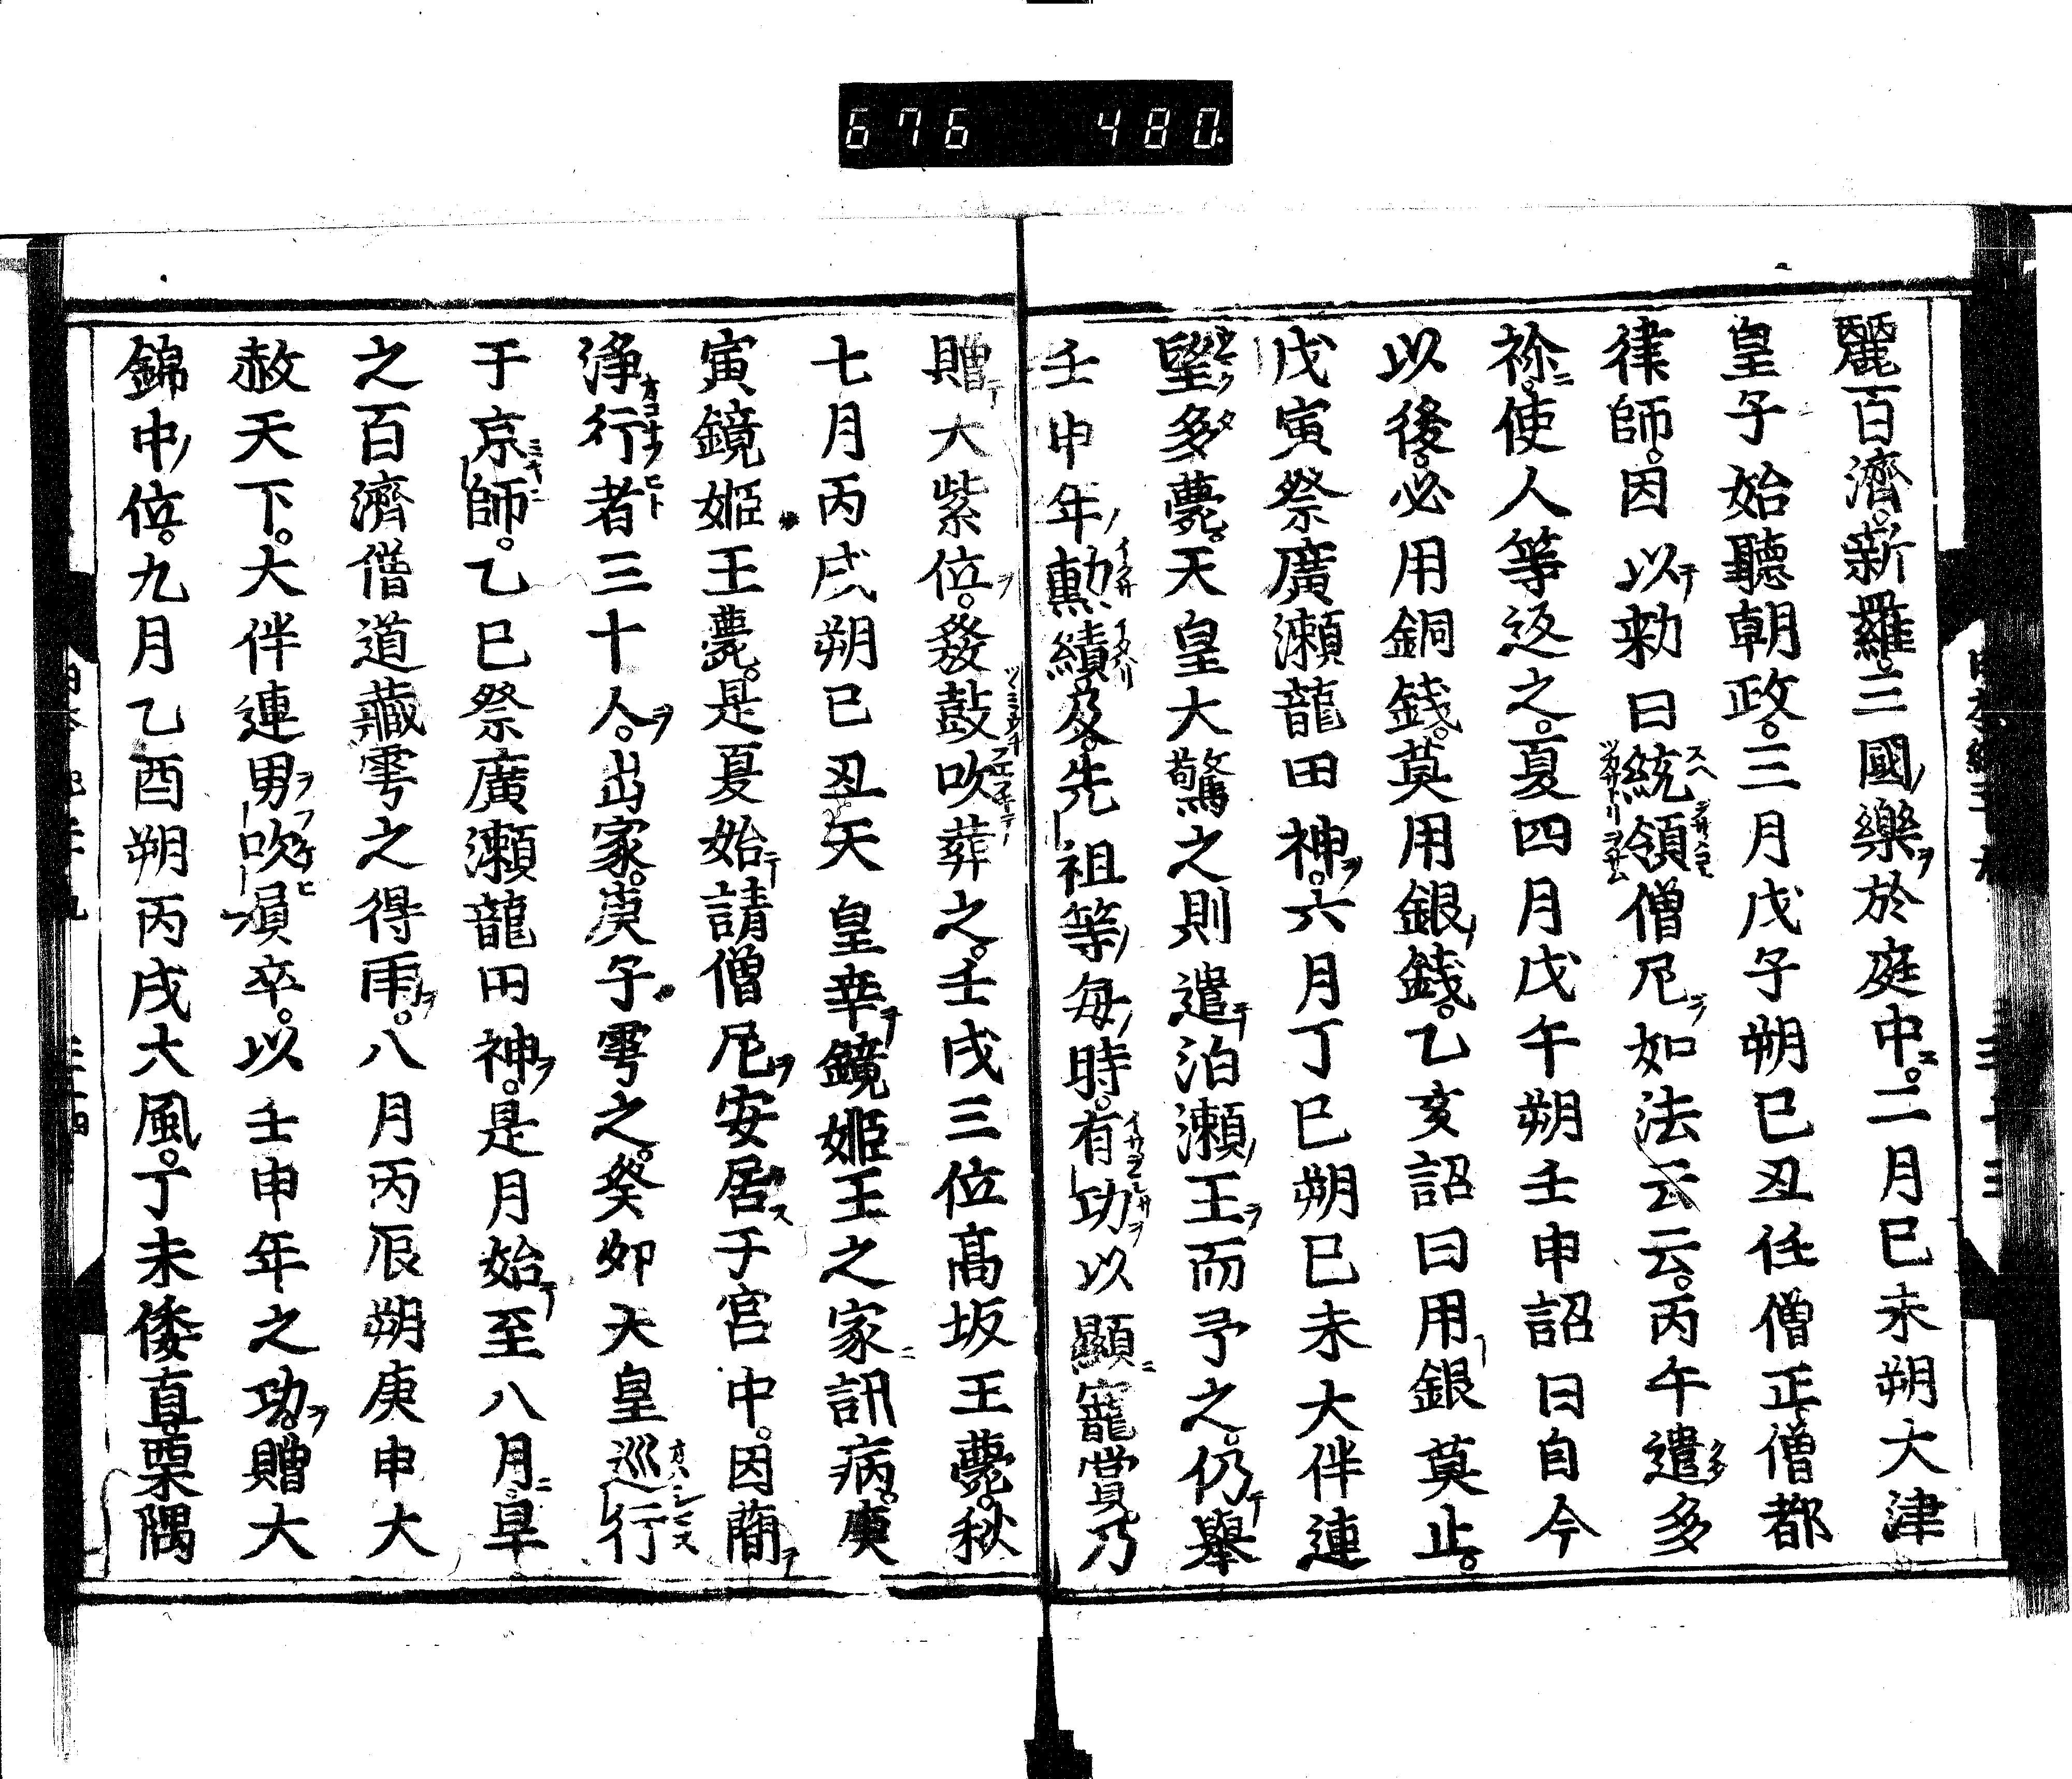 676 480.
麗百濟。新羅。三國ノ樂ヲ於庭中ニ。二月巳未朔大津
皇子始聽朝政。三月戊子朔巳丑任僧正僧都
律師。因以テ勅曰統領僧尼ヲ如法云云。丙午遣多
祢ニ。使人等返之。夏四月戊午朔壬申詔曰自今
以後。必用銅錢。莫用銀錢。乙亥詔曰用銀莫止。
戊寅祭廣瀬龍田神ヲ。六月丁巳朔巳未大伴連
望多薨。天皇大驚之則遣テ泊瀬ノ王ヲ而予之。仍テ舉
壬申年ノ勲績及。先祖等ノ毎ノ時。有功以顯ニ寵賞。乃
贈テ大紫位ヲ。發鼓吹葬之。壬戌三位髙坂王薨。秋
七月丙戌朔巳丑天皇幸テ鏡姬王之家ニ訊病。庚
寅鏡姬王薨。是夏始テ請僧尼ヲ安居ス于宮中。因蕳ヲ
淨行者三十人ヲ。出家。庚子雩之。癸卯天皇巡行
于京師。乙巳祭廣瀬龍田神ヲ。是月始テ至八月ニ。旱
之百濟僧道藏雩之得雨ヲ。八月丙辰朔庚申大
赦天下。大伴連男吹損卒。以壬申年之功ヲ。贈大
錦中ノ位。九月乙酉朔丙戌大風。丁未倭直。栗隅